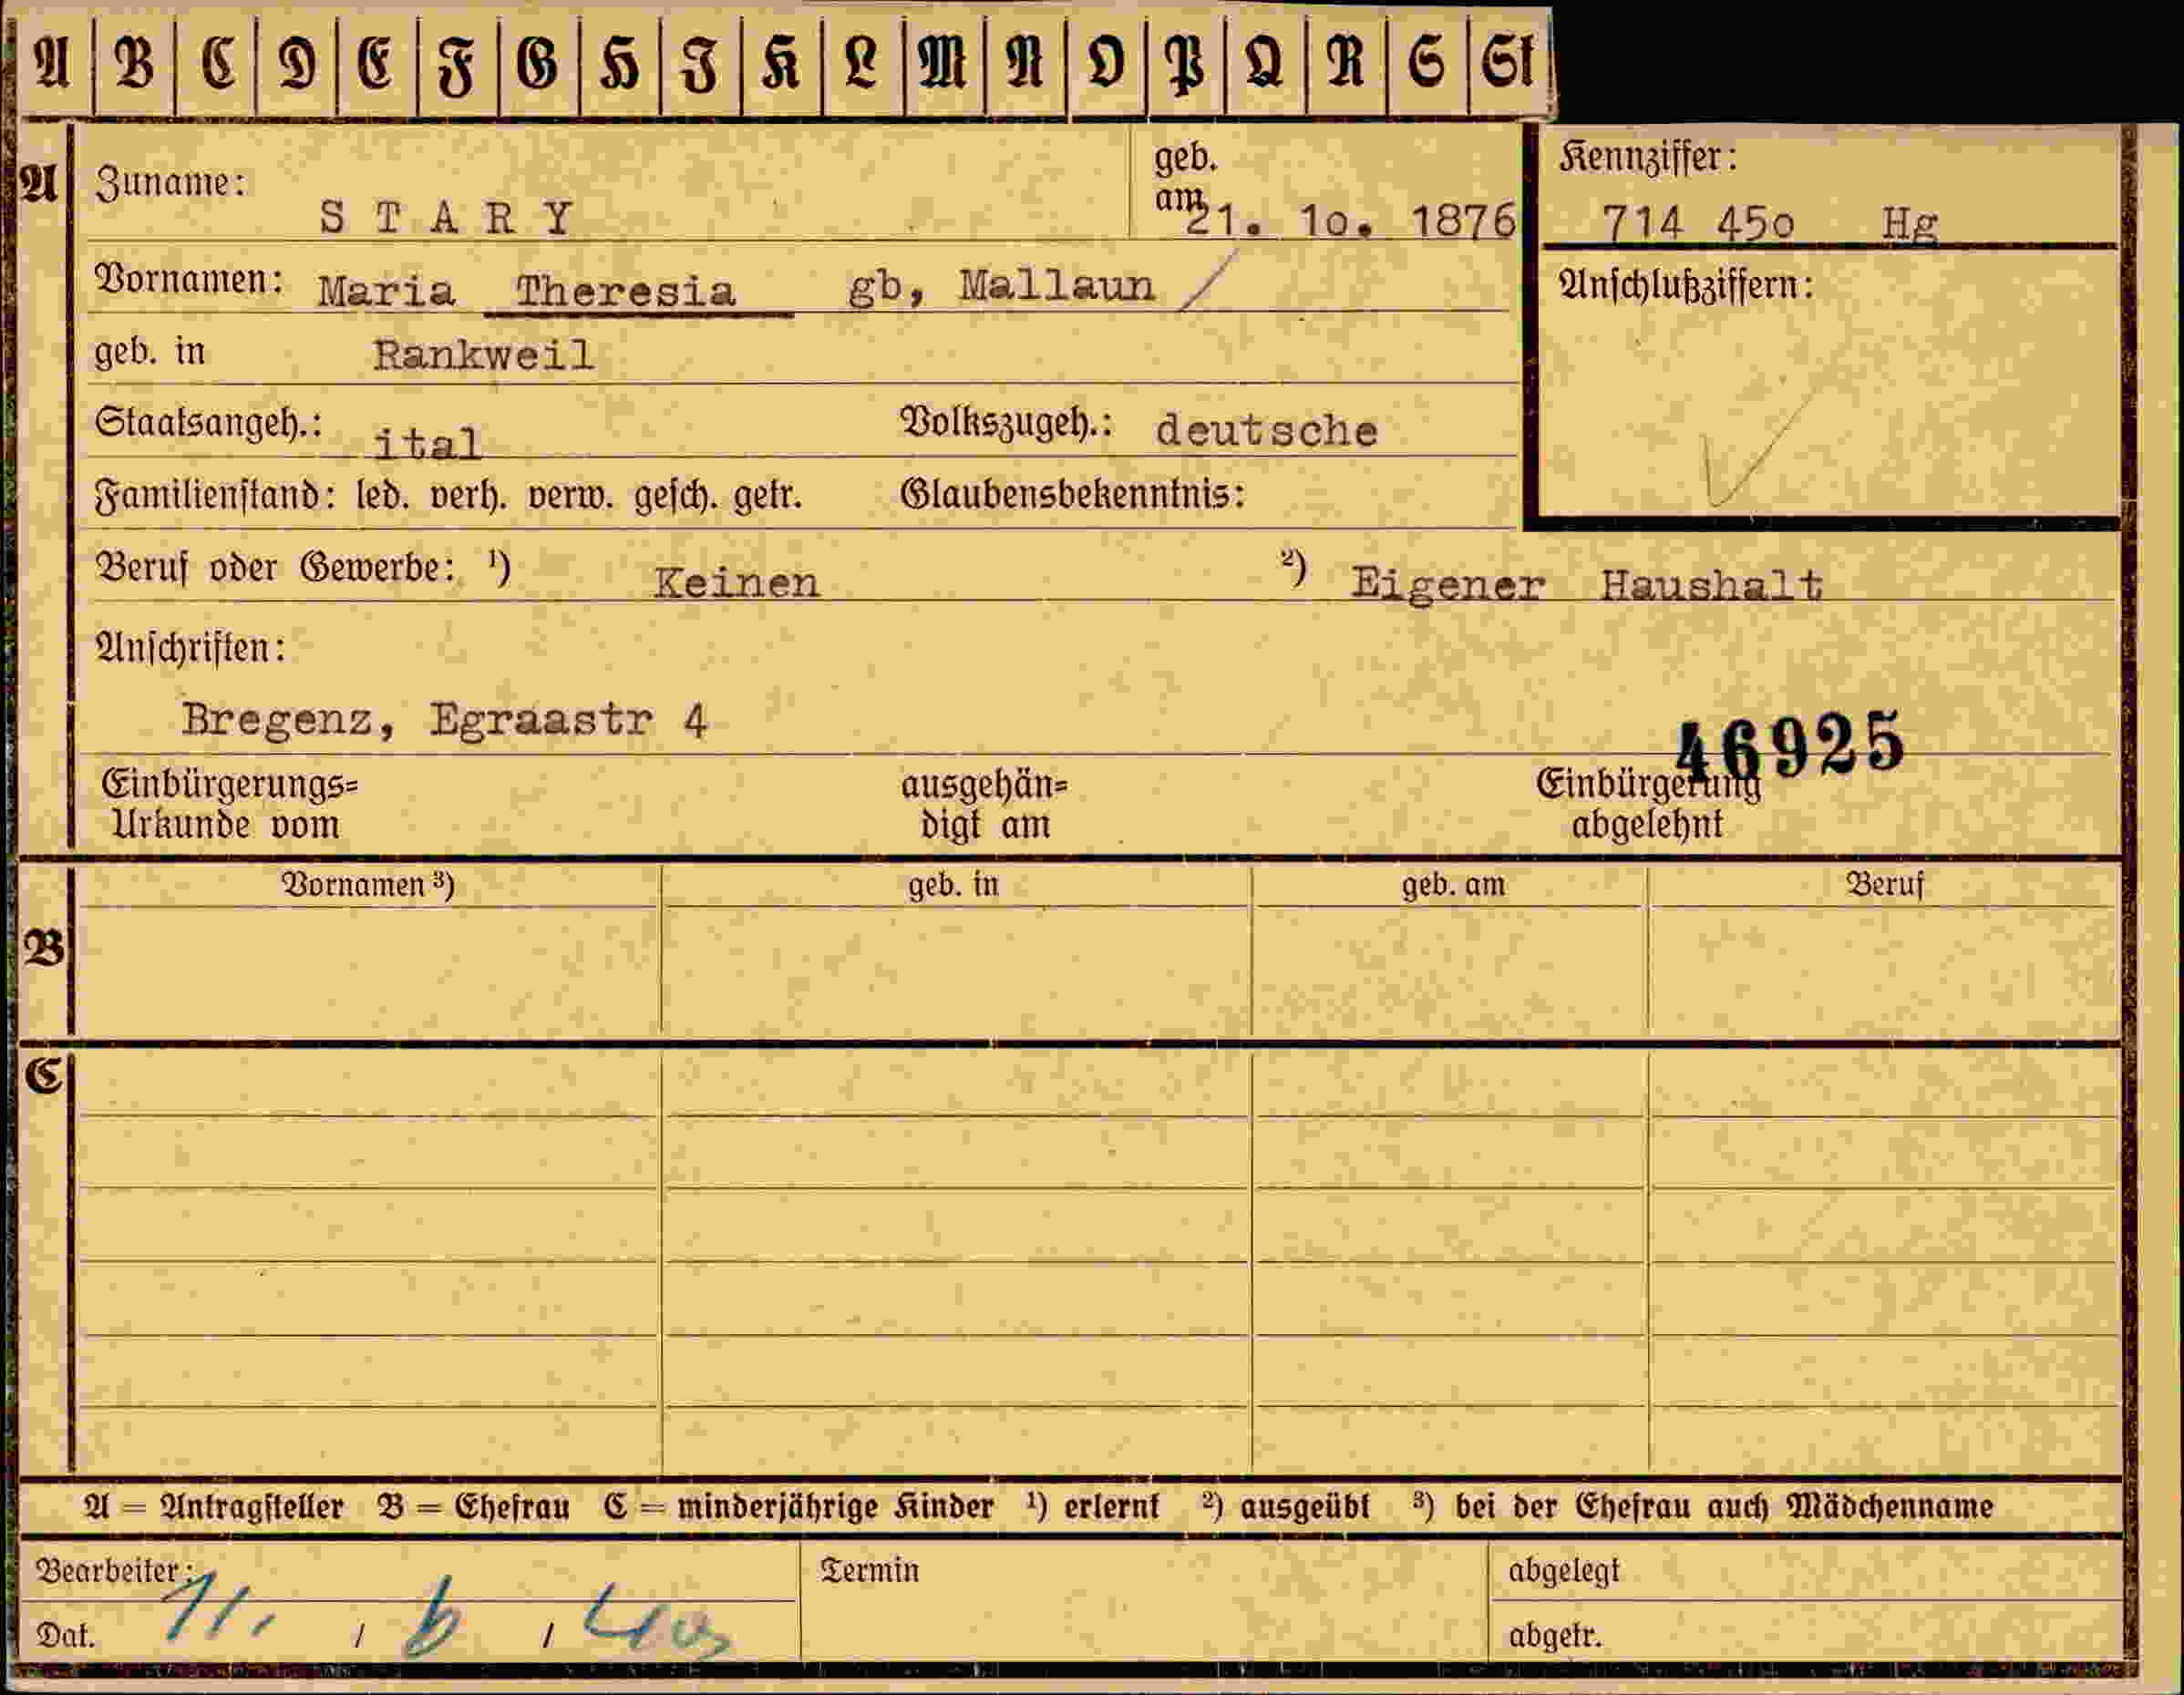 A B C D E F G H I K L M N O P Q R S St
A Zuname: STARY geb. am 21. 10. 1876 Kennziffer: 714 450 Hg
Vornamen: Maria Theresia gb, Mallaun / Anschlußziffern:
geb. in Rankweil
Staatsangeh.: ital Volkszugeh.: deutsche
Familienstand: led. verh. verw. gesch. getr. Glaubensbekenntnis:
Beruf oder Gewerbe: ¹) Keinen ²) Eigener Haushalt
Anschriften:
Bregenz, Egraastr 4
46925
Einbürgerungs= ausgehän= Einbürgerung
Urkunde vom digt am abgelehnt
Vornamen ³) geb. in geb. am Beruf
B
C
A = Antragsteller B = Ehefrau C = minderjährige Kinder ¹) erlernt ²) ausgeübt ³) bei der Ehefrau auch Mädchenname
Bearbeiter: Termin abgelegt
Dat. abgetr.